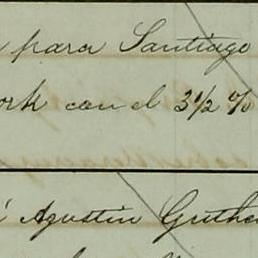 para Santiago
ork con el 3 1/2 %
Agustin Guthe